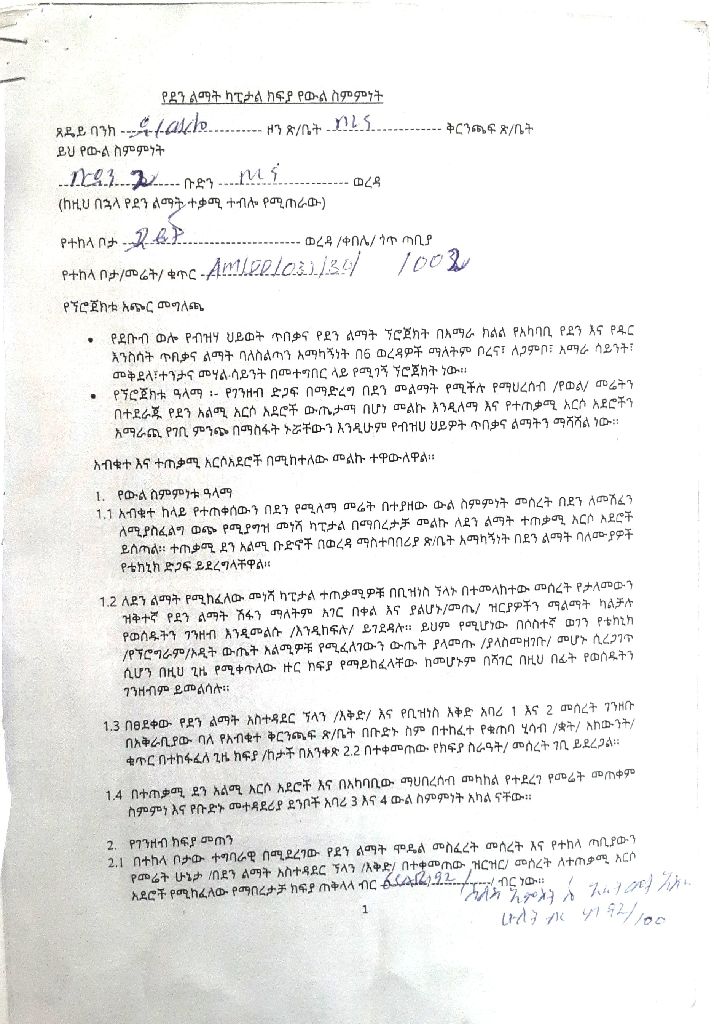 የደን ልማት ካፒታል ክፍያ የውል ስምምነት
ጸደይ ባንክ ---- ደ/ወሎ ---- ዞን ጽ/ቤት ---- ቦረና ---- ቅርንጫፍ ጽ/ቤት
ይህ የውል ስምምነት
---- 2 ---- ቡድን ---- ቦረና ---- ወረዳ
(ከዚህ በኋላ የደን ልማት ተቃሚ ተብሎ የሚጠራው)
የተከላ ቦታ ---- ወረዳ /ቀበሌ/ ጎጥ ጣቢያ
የተከላ ቦታ/መሬት/ ቁጥር - AM/DD/03/30/ 1002
የኘሮጀክቱ አጭር መግለጫ
• የደቡብ ወሎ የብዝሃ ህይወት ጥበቃና የደን ልማት ኘሮጀክት በአማራ ክልል የአካባቢ የደን እና የዱር
እንስሳት ጥበቃና ልማት ባለስልጣን አማካኝነት በ6 ወረዳዎች ማለትም ቦረና፣ ለጋምቦ፣ አማራ ሳይንት፣
መቅደላ፣ተንታና መሃል-ሳይንት በመተግበር ላይ የሚገኝ ኘሮጀክት ነው።
• የኘሮጀክቱ ዓላማ ፡- የገንዘብ ድጋፍ በማድረግ በደን መልማት የሚችሉ የማህረሰብ /የወል/ መሬትን
በተደራጁ የደን አልሚ አርሶ አደሮች ውጤታማ በሆነ መልኩ እንዲለማ እና የተጠቃሚ አርሶ አደሮችን
አማራጪ የገቢ ምንጭ በማስፋት ኑሯቸውን እንዲሁም የብዝሀ ህይዎት ጥበቃና ልማትን ማሻሻል ነው።
አብቁተ እና ተጠቃሚ አርሶአደሮች በሚከተለው መልኩ ተዋውለዋል።
1. የውል ስምምነቱ ዓላማ
1.1 አብቁተ ከላይ የተጠቀሰውን በደን የሚለማ መሬት በተያዘው ውል ስምምነት መሰረት በደን ለመሸፈን
ለሚያስፈልግ ወጭ የሚያግዝ መነሻ ካፒታል በማበረታቻ መልኩ ለደን ልማት ተጠቃሚ አርሶ አደሮች
ይሰጣል። ተጠቃሚ ደን አልሚ ቡድኖች በወረዳ ማስተባበሪያ ጽ/ቤት አማካኝነት በደን ልማት ባለሙያዎች
የቴክኒክ ድጋፍ ይደረግላቸዋል።
1.2 ለደን ልማት የሚከፈለው መነሻ ካፒታል ተጠቃሚዎቹ በቢዝነስ ኘላኑ በተመላከተው መሰረት የታለመውን
ዝቅተኛ የደን ልማት ሽፋን ማለትም አገር በቀል እና ያልሆኑ/መጤ/ ዝርያዎችን ማልማት ካልቻሉ
የወሰዱትን ገንዘብ እንዲመልሱ /እንዲከፍሉ/ ይገደዳሉ። ይህም የሚሆነው በሶስተኛ ወገን የቴክኒክ
/የኘሮግራም/ኦዲት ውጤት አልሚዎቹ የሚፈለገውን ውጤት ያላመጡ /ያላስመዘገቡ/ መሆኑ ሲረጋገጥ
ሲሆን በዚህ ጊዜ የሚቀጥለው ዙር ክፍያ የማይከፈላቸው ከመሆኑም በሻገር በዚህ በፊት የወሰዱትን
ገንዘብም ይመልሳሉ።
1.3 በፀደቀው የደን ልማት አስተዳደር ኘላን /እቅድ/ እና የቢዝነስ እቅድ አባሪ 1 እና 2 መሰረት ገንዘቡ
በአቅራቢያው ባለ የአብቁተ ቅርንጫፍ ጽ/ቤት በቡድኑ ስም በተከፈተ የቁጠባ ሂሳብ /ቋት/ አከውንት/
ቁጥር በተከፋፈለ ጊዜ ክፍያ /ከታች በአንቀጽ 2.2 በተቀመጠው የክፍያ ስራዓት/ መሰረት ገቢ ይደረጋል።
1.4 በተጠቃሚ ደን አልሚ አርሶ አደሮች እና በአካባቢው ማህበረሰብ መካከል የተደረገ የመሬት መጠቀም
ስምምነ እና የቡድኑ መተዳደሪያ ደንቦች አባሪ 3 እና 4 ውል ስምምነት አካል ናቸው።
2. የገንዘብ ክፍያ መጠን
2.1 በተከላ ቦታው ተግባራዊ በሚደረገው የደን ልማት ሞዴል መስፈረት መሰረት እና የተከላ ጣቢያውን
የመሬት ሁኔታ /በደን ልማት አስተዳደር ኘላን /እቅድ/ በተቀመጠው ዝርዝር/ መሰረት ለተጠቃሚ አርሶ
አደሮች የሚከፈለው የማበረታቻ ክፍያ ጠቅላላ ብር ---- / ብር ነው።
ሁለት ብር ከ 92/100
1